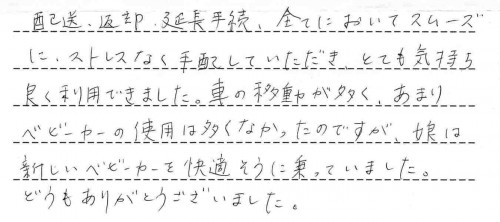 配送、返却、延長手続、全てにおいてスムーズ
に、ストレスなく手配していただき、とても気持ち
良く利用できました。車の移動が多く、あまり
ベビーカーの使用は多くなかったのですが、娘は
新しいベビーカーを快適そうに乗っていました。
どうもありがとうございました。